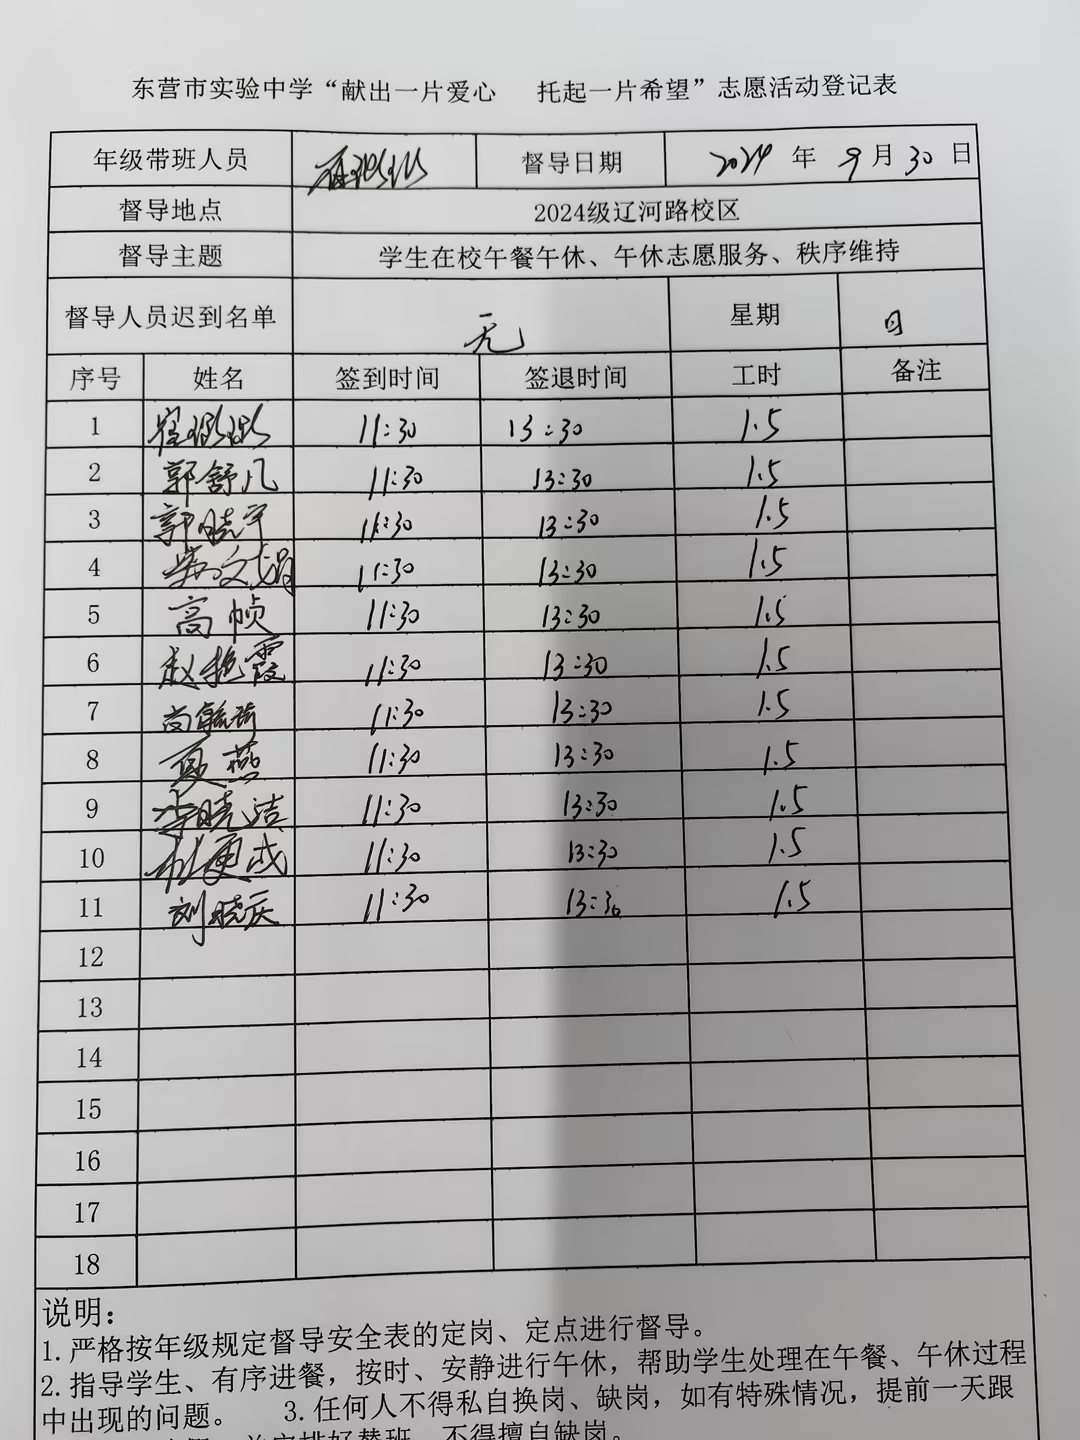 东营市实验中学“献出一片爱心 托起一片希望”志愿活动登记表
年级带班人员 督导日期 2024 年 9 月 30 日
督导地点 2024级辽河路校区
督导主题 学生在校午餐午休、午休志愿服务、秩序维持
督导人员迟到名单 无 星期 日
序号 姓名 签到时间 签退时间 工时 备注
1 11:30 13:30 1.5
2 郭舒凡 11:30 13:30 1.5
3 郭晓宇 11:30 13:30 1.5
4 11:30 13:30 1.5
5 高帧 11:30 13:30 1.5
6 赵艳霞 11:30 13:30 1.5
7 11:30 13:30 1.5
8 夏燕 11:30 13:30 1.5
9 李晓洁 11:30 13:30 1.5
10 11:30 13:30 1.5
11 刘晓庆 11:30 13:30 1.5
12
13
14
15
16
17
18
说明：
1.严格按年级规定督导安全表的定岗、定点进行督导。
2.指导学生、有序进餐，按时、安静进行午休，帮助学生处理在午餐、午休过程
中出现的问题。 3.任何人不得私自换岗、缺岗，如有特殊情况，提前一天跟
排好替班，不得擅自缺岗。